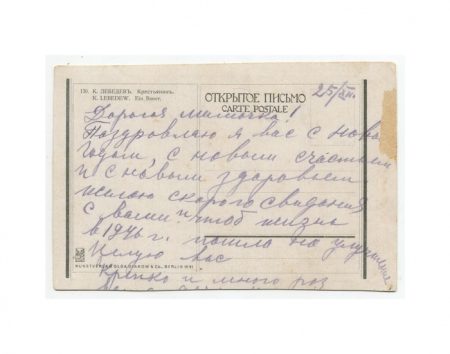 130. К. ЛЕБЕДЕВЪ. Крестьянинъ.
K. LEBEDEW. Ein Bauer.
ОТКРЫТОЕ ПИСЬМО
CARTE POSTALE
25/XII.
Дорогая мамочка!
Поздравляю я вас с новы
годом, с новым счастьем
и с новым здоровьем
желаю скорого свидания
с вами и чтоб жизнь
в 1946 г. пошла на улучшение
Целую вас
крепко и много раз
KUNSTVERLAG OLGA DIAKOW & CO., BERLIN W